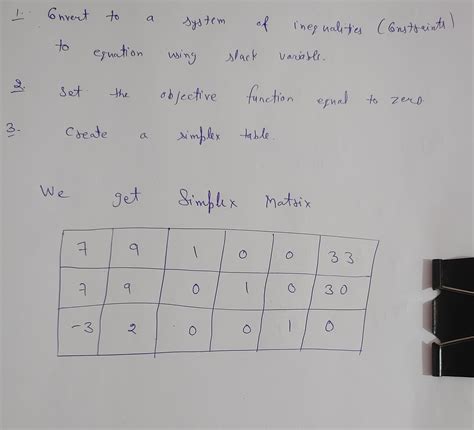 1. Convert to a system of inequalities (Constraints)
to equation using slack variable.
2. Set the objective function equal to zero
3. Create a simplex table.
We get Simplex Matrix
7 9 1 0 0 33
7 9 0 1 0 30
-3 2 0 0 1 0